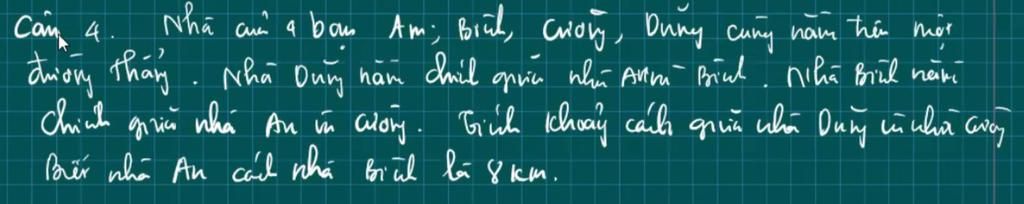 Câu 4. Nhà của 4 bạn An, Bình, Cường, Dũng cùng nằm trên một
đường thẳng. Nhà Dũng nằm chính giữa nhà An và Bình. Nhà Bình nằm
chính giữa nhà An và Cường. Tính khoảng cách giữa nhà Dũng và nhà Cường
Biết nhà An cách nhà Bình là 8 km.